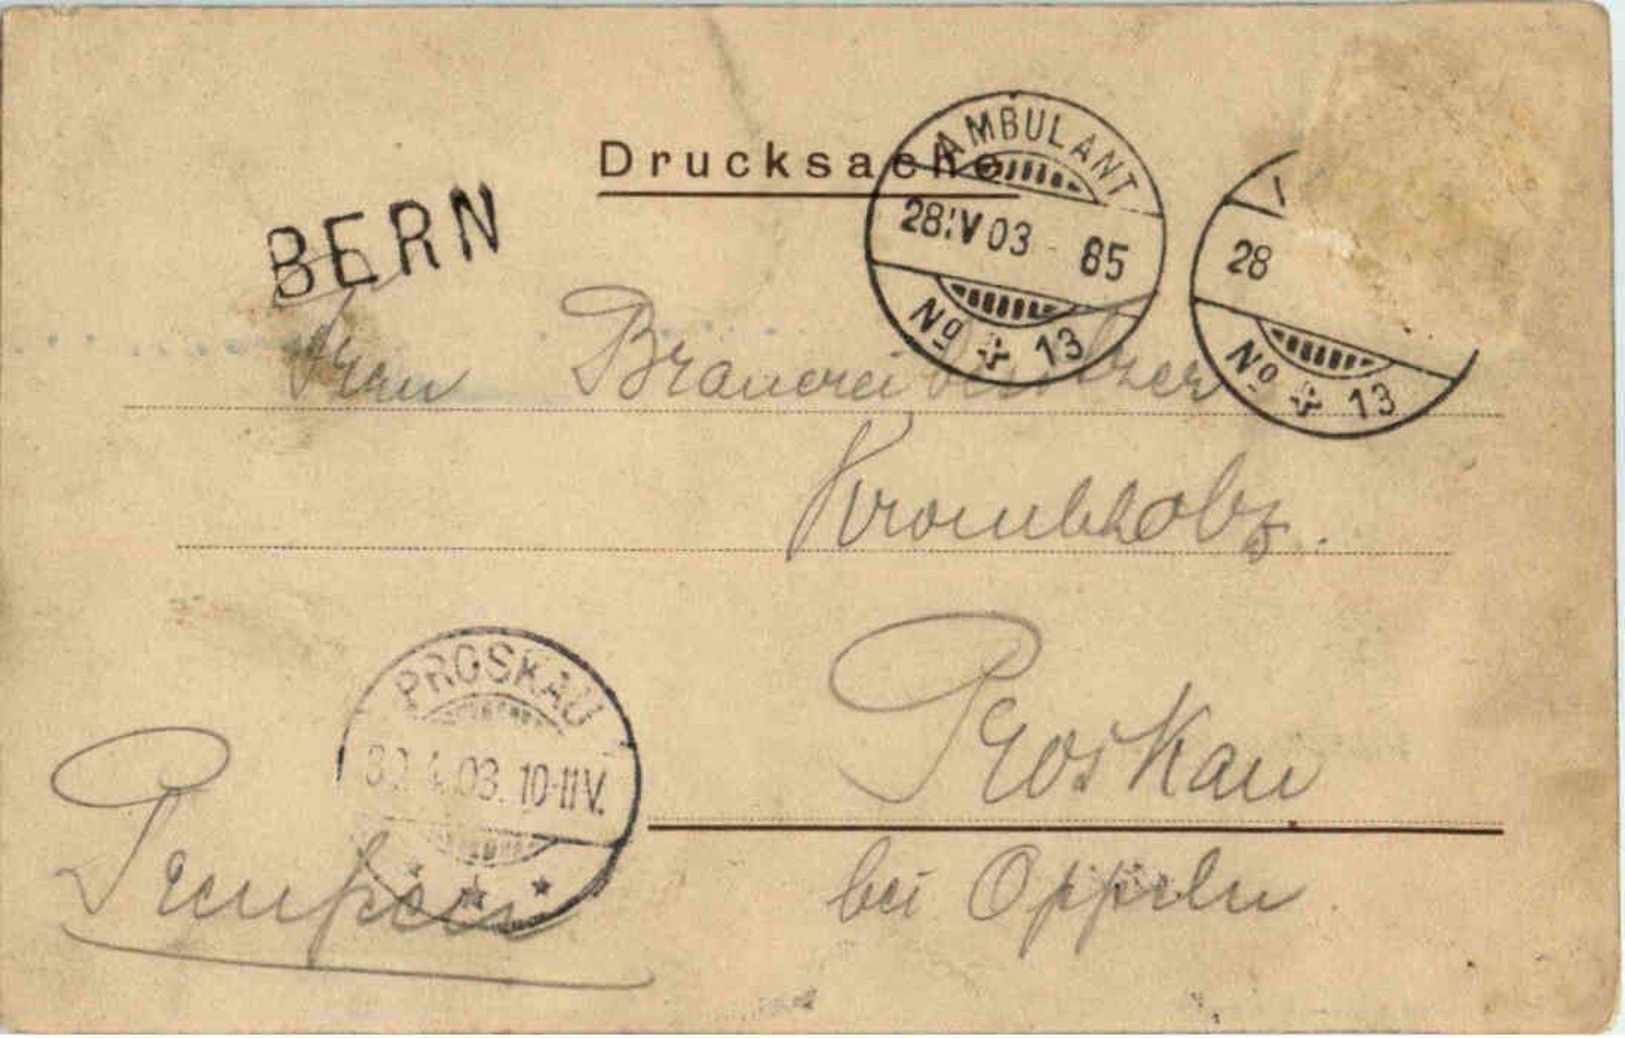 Drucksache
BERN
AMBULANT
28.IV 03 - 85
No 13
28
No 13
Frau Brauereibesitzer
Krombholz.
PROSKAU
30.4.03. 10-11V.
Proskau
bei Oppeln
Preußen